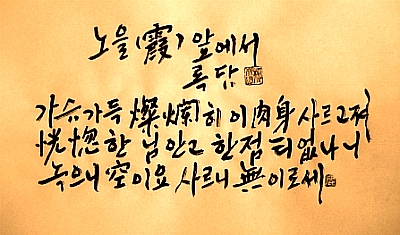 노을(霞) 앞에서
록담
가슴가득 燦爛히 이 肉身 사르고져
恍惚한 님 안고 한점 티 없나니
녹으니 空이요 사르니 無이로세